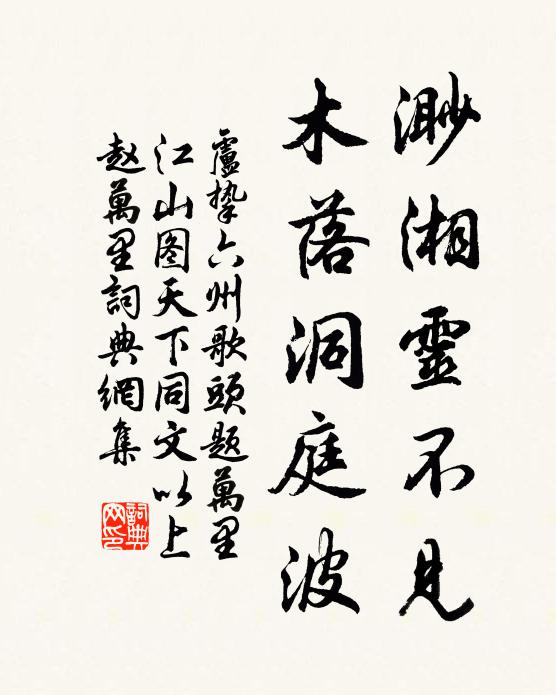 渺湘靈不見
木落洞庭波
盧摯六州歌頭題萬里
江山图天下同文以上
赵萬里詞典網集
詞典网印